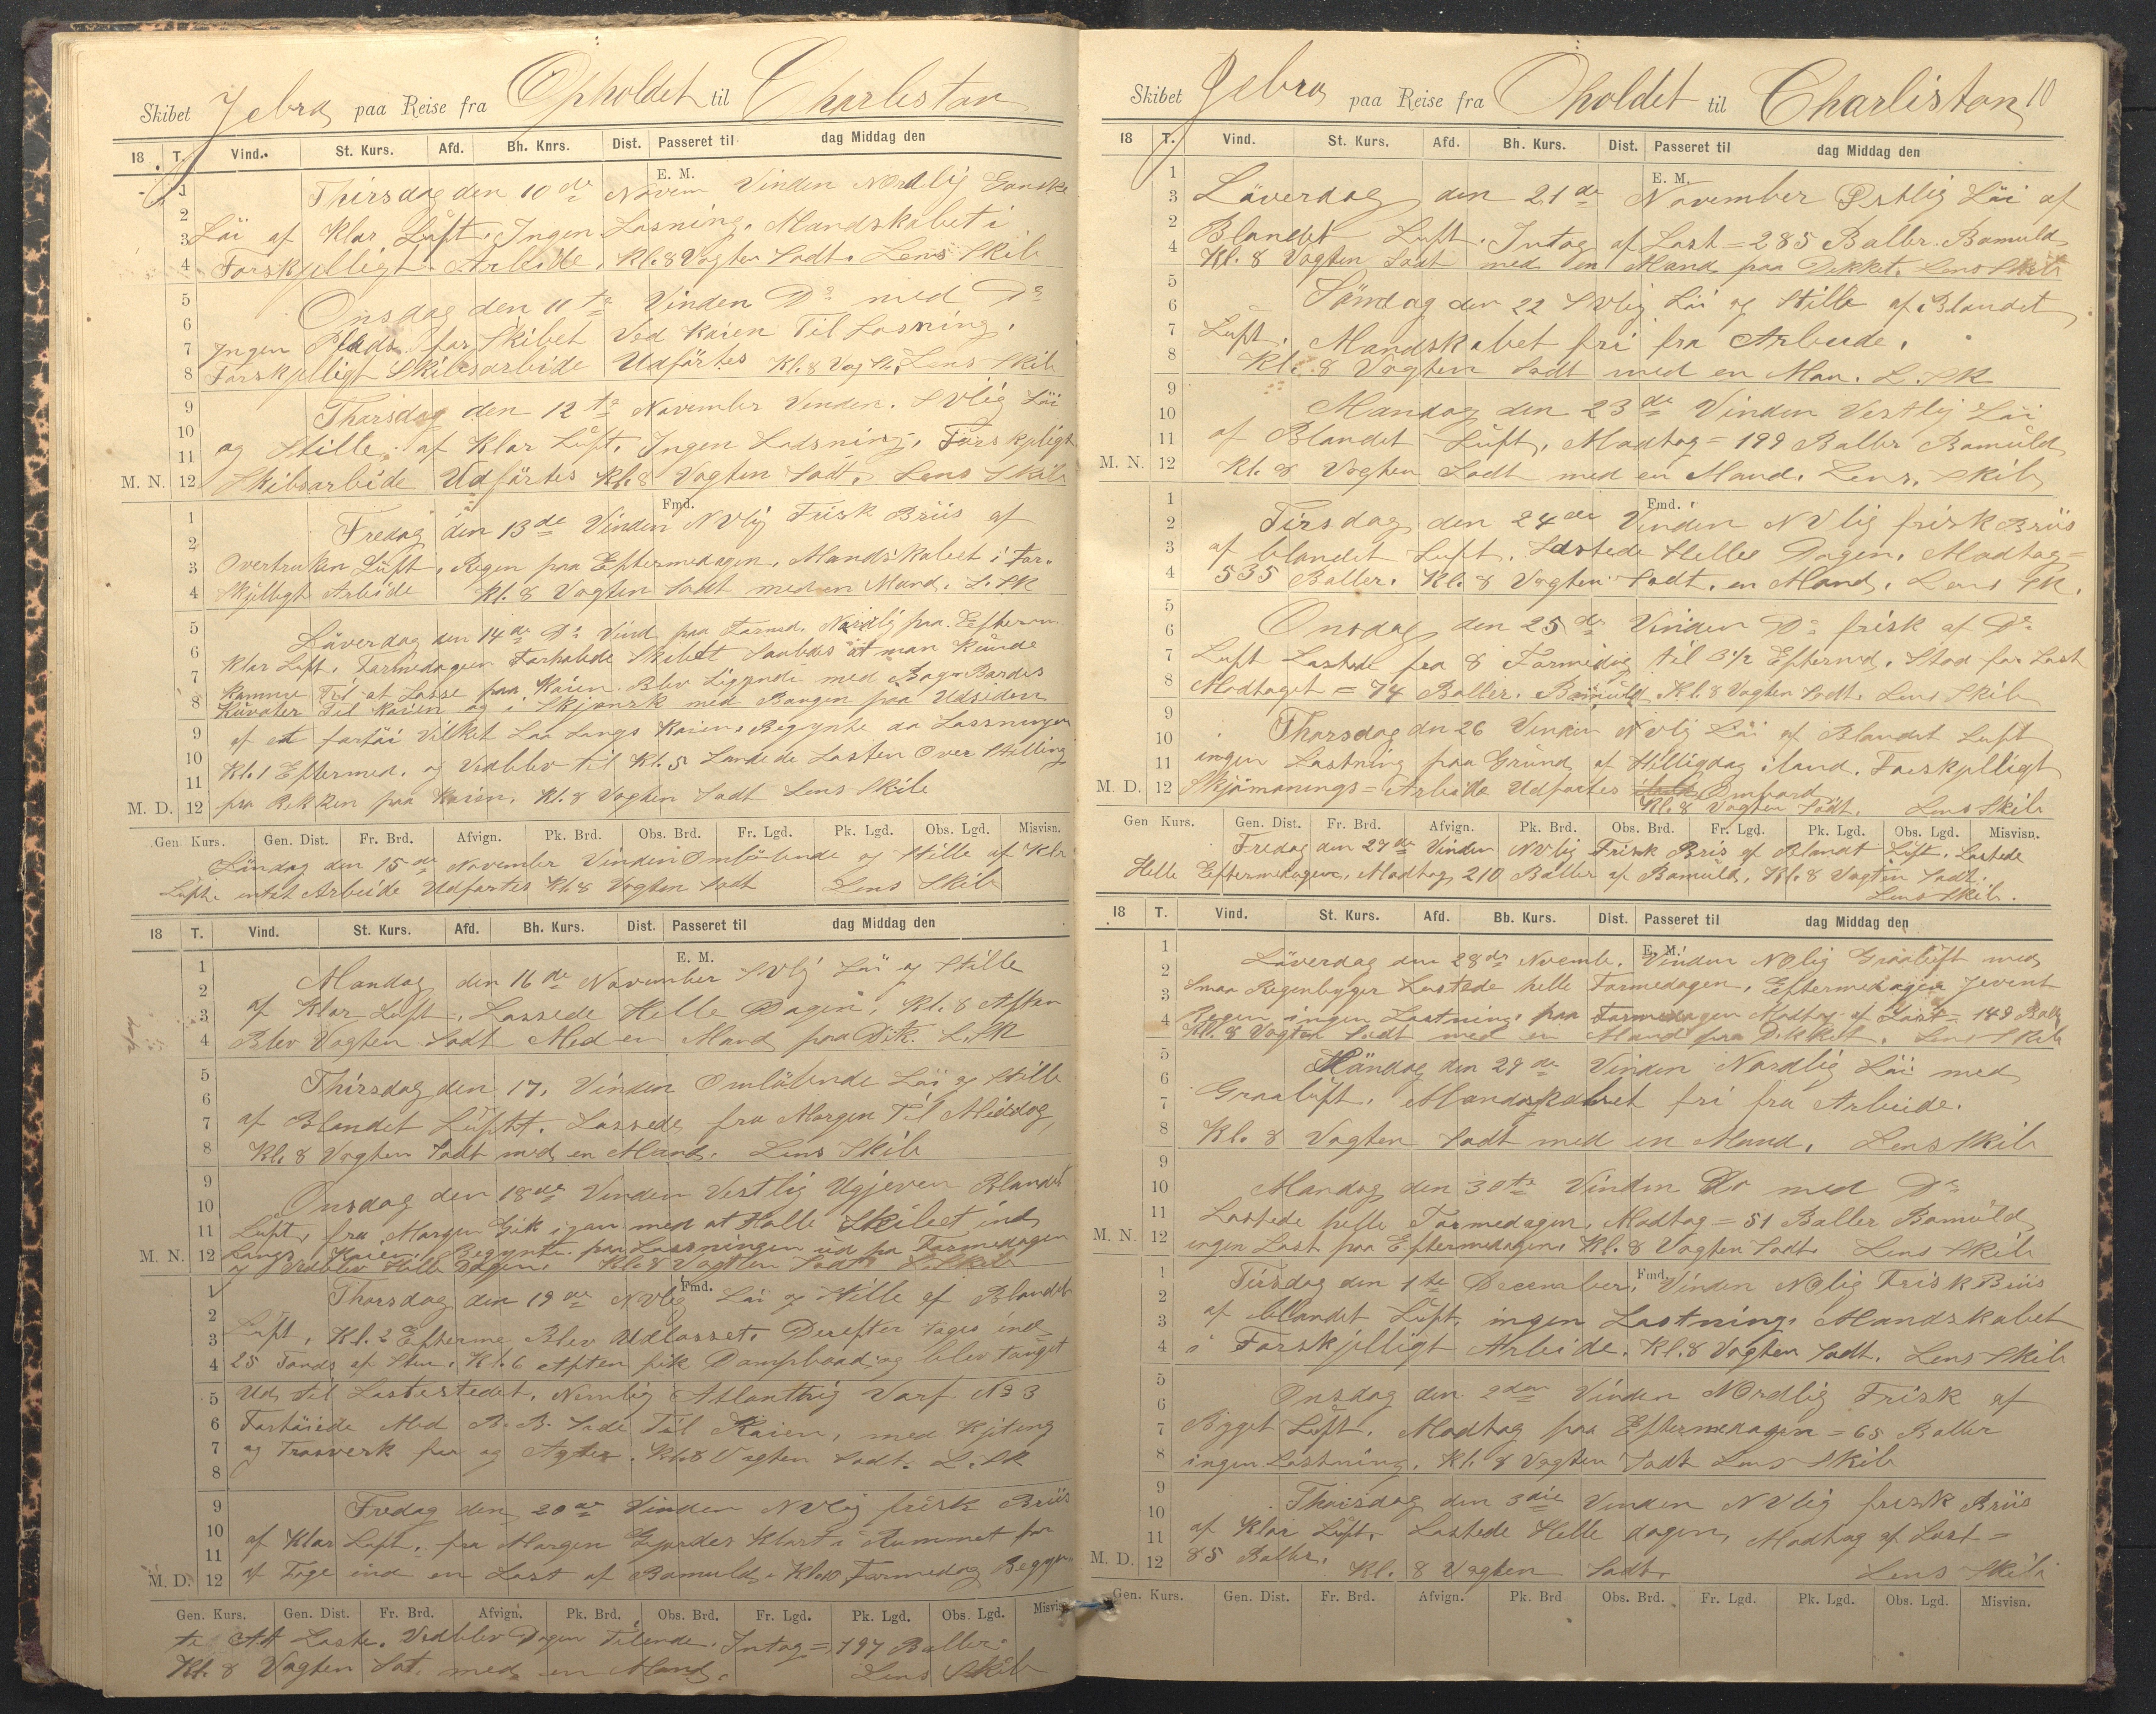 Skibet Jebra paa Reise fra Opholdet til Charlestan
18 T. Vind. St. Kurs. Afd. Bh. Knrs. Dist. Passeret til dag Middag den
E. M.
Thirsdag den 10de Novem Vinden Nordlig Ganske
Löi af Klar Luft. Ingen Losning. Mandskabet i
Forskjelligt Arbeide. Kl. 8 Vagten Sadt. Lens Skib
Onsdag den 11te Vinden Do med Do
Ingen Plads for Skibet Ved Kaien Til Losning.
Forskjelligt Skibsarbeide Udförtes Kl. 8 Vag St. Lens Skib
Thorsdag den 12te November Vinden. SVlig Löi
og Stille af Klar Luft. Ingen Lodsning. Forskjeligt
M. N. Skibsarbeide Udförtes Kl. 8 Vagten Sadt. Lens Skib
Fmd.
Fredag den 13de Vinden NVlig Frisk Briis af
Overtruken Luft. Regen paa Eftermedagen. Mandskabet i For-
skjelligt Arbeide Kl. 8 Vagten Sadt med en Mand. L. SK
Löverdag den 14de Do Vind paa Formed. Nordlig paa Efterm
Klar Luft. Formedagen Forhalede Skibet Saaledes at man Kunde
Komme Til at Losse paa Kaien. Blev Liggende med Bagn Bordes
Kuvater Til Kaien og i Skjønsk med Bougen paa Udseden
af et fartöi Vilket Laa Langs Kaien. Begynte da Lossningen
Kl. 1 Eftermed. og Vedblev til Kl. 5 Landede Lasten Over Stilling
M. D. fra Rekken paa Kaien. Kl. 8 Vagten Sadt Lens Skib
Gen Kurs. Gen. Dist. Fr. Brd. Afvign. Pk. Brd. Obs. Brd. Fr. Lgd. Pk. Lgd. Obs. Lgd. Misvisn.
Söndag den 15de November Vinden Omlöbende og Stille af Klar
Luft. intet Arbeide Udfortes Kl. 8 Vagten Sadt Lens Skib
18 T. Vind. St. Kurs. Afd. Bh. Kurs. Dist. Passeret til dag Middag den
E. M.
Mandag den 16de November SVlj Löi og Stille
af Klar Luft. Lossede Helle Dagen, Kl. 8 Aften
Blev Vagten Sadt Med en Mand paa Dik. L. SK
Thirsdag den 17. Vinden Omlöbende Löi og Stille
af Blandet Luft. Lossede fra Morgen Til Middag,
Kl. 8 Vagten Sadt med en Mand. Lens Skib
Onsdag den 18de Vinden Vestlig Ugjeven Blandet
Luft, fra Morgen Gik igan med at Halle Skibet ind
M. N. Langs Kaien. Begynte paa Lossningen ud paa Formedagen
og Vedblev Hille Dagen. Kl. 8 Vagten Sadt L. Skib
Fmd.
Thorsdag den 19de NVlig Löi og Stille af Blandet
Luft, Kl. 2 Efterme Blev Udlosset. Derefter Toges ind
25 Tonds af Sten. Kl. 6 Aften fik Dampboad og blev Tauget
Ud til Lastestedet, Nemlig Atlanthig Varf No 3
Fortöiede Med B. B. Side Til Kaien, med Kjeting
og Trosverk for og Agter. Kl. 8 Vagten Sadt. L. SK
Fredag den 20de Vinden NVlig frisk Briis
af Klar Luft. fra Morgen Gjordes Klart i Rummet for
M. D. at Tage ind en Last af Bomuld. Kl. 10 Formedag Begyn
Gen. Kurs. Gen. Dist. Fr. Brd. Afvign. Pk. Brd. Obs. Brd. Fr. Lgd. Pk. Lgd. Obs. Lgd. Misvisn.
te At Laste. Vedblev Dagen Tilende. Intog = 197 Baller.
Kl. 8 Vagten Sat. med en Mand. Lens Skib
Skibet Jebra paa Reise fra Oholdet til Charliston 10
18 T. Vind. St. Kurs. Afd. Bh. Kurs. Dist. Passeret til dag Middag den
E. M.
Löverdag den 21de November Ostlig Löi af
Blandet Luft. Intog af Last = 285 Baller Bomuld
Kl. 8 Vagten Sadt med en Mand paa Dekket. Lens Skib
Söndag den 22 SVlig Löi og Stille af Blandet
Luft. Mandskabet fri fra Arbeide.
Kl. 8 Vagten Sadt med en Man. L. SK
Mandag den 23de Vinden Vestlig Löi
af Blandet Luft. Modtog = 199 Baller Bomuld
M. N. Kl. 8 Vagten Sadt med en Mand. Lens. Skib
Fmd.
Tirsdag den 24de Vinden NVlig frisk Briis
af blandet Luft. Lastede Helle Dagen. Modtog =
535 Baller. Kl. 8 Vagten Sadt. en Mand. Lens SK.
Onsdag den 25de Vinden Do frisk af Do
Luft Lastede fra 8 Formidag til 3 1/2 Eftermd. Stod for Last
Modtaget = 74 Baller. Bomuld Kl. 8 Vagten Sadt. Lens Skib
Thorsdag den 26 Vinden NVlig Löi af Blandet Luft
ingen Lastning paa Grund af Hilligdag iland. Forskjelligt
M. D. Skjömanings = Arbeide Udfortes Ombord
Kl. 8 Vagten Sadt. Lens Skib
Gen Kurs. Gen. Dist. Fr. Brd. Afvign. Pk. Brd. Obs. Brd. Fr. Lgd. Pk. Lgd. Obs. Lgd. Misvisn.
Fredag den 27de Vinden NVlig Frisk Bris af Blandt Luft. Lastede
Helle Eftermedagen. Modtog 210 Baller af Bomuld. Kl. 8 Vagten Sadt.
Lens Skib.
18 T. Vind. St. Kurs. Afd. Bb. Kurs. Dist. Passeret til dag Middag den
E. M.
Löverdag den 28de Novemb. Vinden NOlig Graaluft med
Smaa Regenbyger Lastede helle Formedagen. Eftermedagen Jevent
Regen ingen Lastning. paa Formedagen Modtog af Last = 149 Ball
Kl. 8 Vagten Sadt med en Mand paa Dekket. Lens Skib
Söndag den 29de Vinden Nordlig Löi med
Graaluft. Mandskabet fri fra Arbeide.
Kl. 8 Vagten Sadt med en Mand. Lens Skib
Mandag den 30te Vinden Do med Do
Lastede helle Formedagen. Modtog = 51 Baller Bomuld
M. N. ingen Last paa Eftermedagen. Kl. 8 Vagten Sadt. Lens Skib
Fmd.
Tirsdag den 1te December. Vinden NOlig Frisk Briis
af blandet Luft. ingen Lastning. Mandskabet
i Forskjelligt Arbeide. Kl. 8 Vagten Sadt. Lens Skib
Onsdag den 2den Vinden Nordlig Frisk af
Bygget Luft. Modtog paa Eftermedagen = 65 Baller
ingen Lastning. Kl. 8 Vagten Sadt Lens Skib
Thorsdag den 3die Vinden NVlig frisk Briis
af Klar Luft. Lastede Helle dagen, Modtog af Last =
M. D. 85 Baller. Kl. 8 Vagten Sadt. Lens Skib
Gen. Kurs. Gen. Dist. Fr. Brd. Afvign. Pk. Brd Obs. Brd. Fr. Lgd. Pk. Lgd. Obs. Lgd. Misvisn.